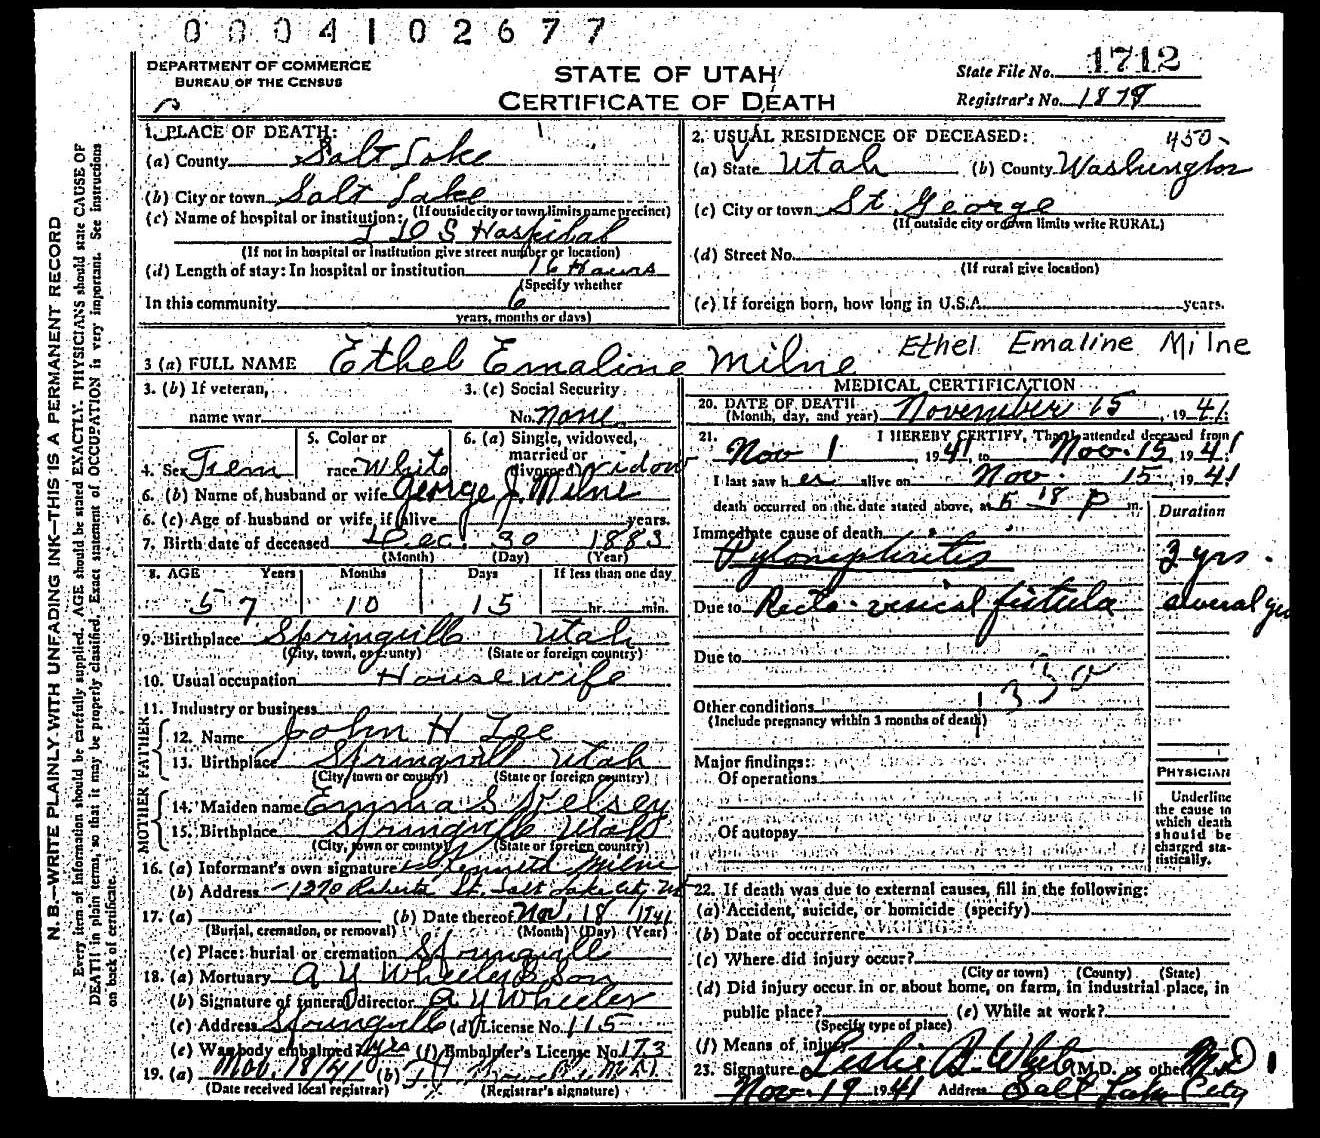 0004102677
DEPARTMENT OF COMMERCE
BUREAU OF THE CENSUS
STATE OF UTAH
CERTIFICATE OF DEATH
State File No. 1712
Registrar's No. 1878
1. PLACE OF DEATH:
(a) County Salt Lake
(b) City or town Salt Lake
(If outside city or town limits name precinct)
(c) Name of hospital or institution:
L D S Hospital
(If not in hospital or institution give street number or location)
(d) Length of stay: In hospital or institution 16 Hours
(Specify whether
In this community 6
years, months or days)
2. USUAL RESIDENCE OF DECEASED: 450-
(a) State Utah (b) County Washington
(c) City or town St. George
(If outside city or town limits write RURAL)
(d) Street No.
(If rural give location)
(e) If foreign born, how long in U.S.A. years.
3 (a) FULL NAME Ethel Emaline Milne Ethel Emaline Milne
3. (b) If veteran,
name war
3. (c) Social Security
No. none
4. Sex Fem
5. Color or
race White
6. (a) Single, widowed,
married or
divorced widow
6. (b) Name of husband or wife George J. Milne
6. (c) Age of husband or wife if alive years.
7. Birth date of deceased Dec. 30 1883
(Month) (Day) (Year)
8. AGE Years Months Days If less than one day
57 10 15 hr. min.
9. Birthplace Springville Utah
(City, town, or county) (State or foreign country)
10. Usual occupation Housewife
11. Industry or business
FATHER
12. Name John H Lee
13. Birthplace Springville Utah
(City, town or county) (State or foreign country)
MOTHER
14. Maiden name Emma S Kelsey
15. Birthplace Springville Utah
(City, town or county) (State or foreign country)
16. (a) Informant's own signature Milne
(b) Address 1270 St. Salt Lake City, Ut
17. (a) (b) Date thereof Nov. 18 1941
(Burial, cremation, or removal) (Month) (Day) (Year)
(c) Place: burial or cremation Springville
18. (a) Mortuary A Y Wheeler & Son
(b) Signature of funeral director A Y Wheeler
(c) Address Springville (d) License No. 115
(e) Was body embalmed? yes (f) Embalmer's License No. 173
19. (a) Nov. 18/41 (b)
(Date received local registrar) (Registrar's signature)
MEDICAL CERTIFICATION
20. DATE OF DEATH
(Month, day, and year) November 15, 1941
21. I HEREBY CERTIFY, That I attended deceased from
Nov 1 1941 to Nov. 15, 1941
I last saw her alive on Nov 15, 1941
death occurred on the date stated above, at 5 18 P m.
Duration
Immediate cause of death
Pylonephritis 3 yrs.
Due to Recto-vesical fistula several yrs
Due to
130
Other conditions
(Include pregnancy within 3 months of death)
Major findings:
Of operations
Of autopsy
PHYSICIAN
Underline
the cause to
which death
should be
charged sta-
tistically.
22. If death was due to external causes, fill in the following:
(a) Accident, suicide, or homicide (specify)
(b) Date of occurrence
(c) Where did injury occur?
(City or town) (County) (State)
(d) Did injury occur in or about home, on farm, in industrial place, in
public place? (e) While at work?
(Specify type of place)
(f) Means of injury
23. Signature Leslie (M.D. or other) M.D.
Nov. 19 1941 Address Salt Lake City
N. B.—WRITE PLAINLY WITH UNFADING INK—THIS IS A PERMANENT RECORD
Every item of information should be carefully supplied. AGE should be stated EXACTLY. PHYSICIANS should state CAUSE OF
DEATH in plain terms, so that it may be properly classified. Exact statement of OCCUPATION is very important. See instructions
on back of certificate.